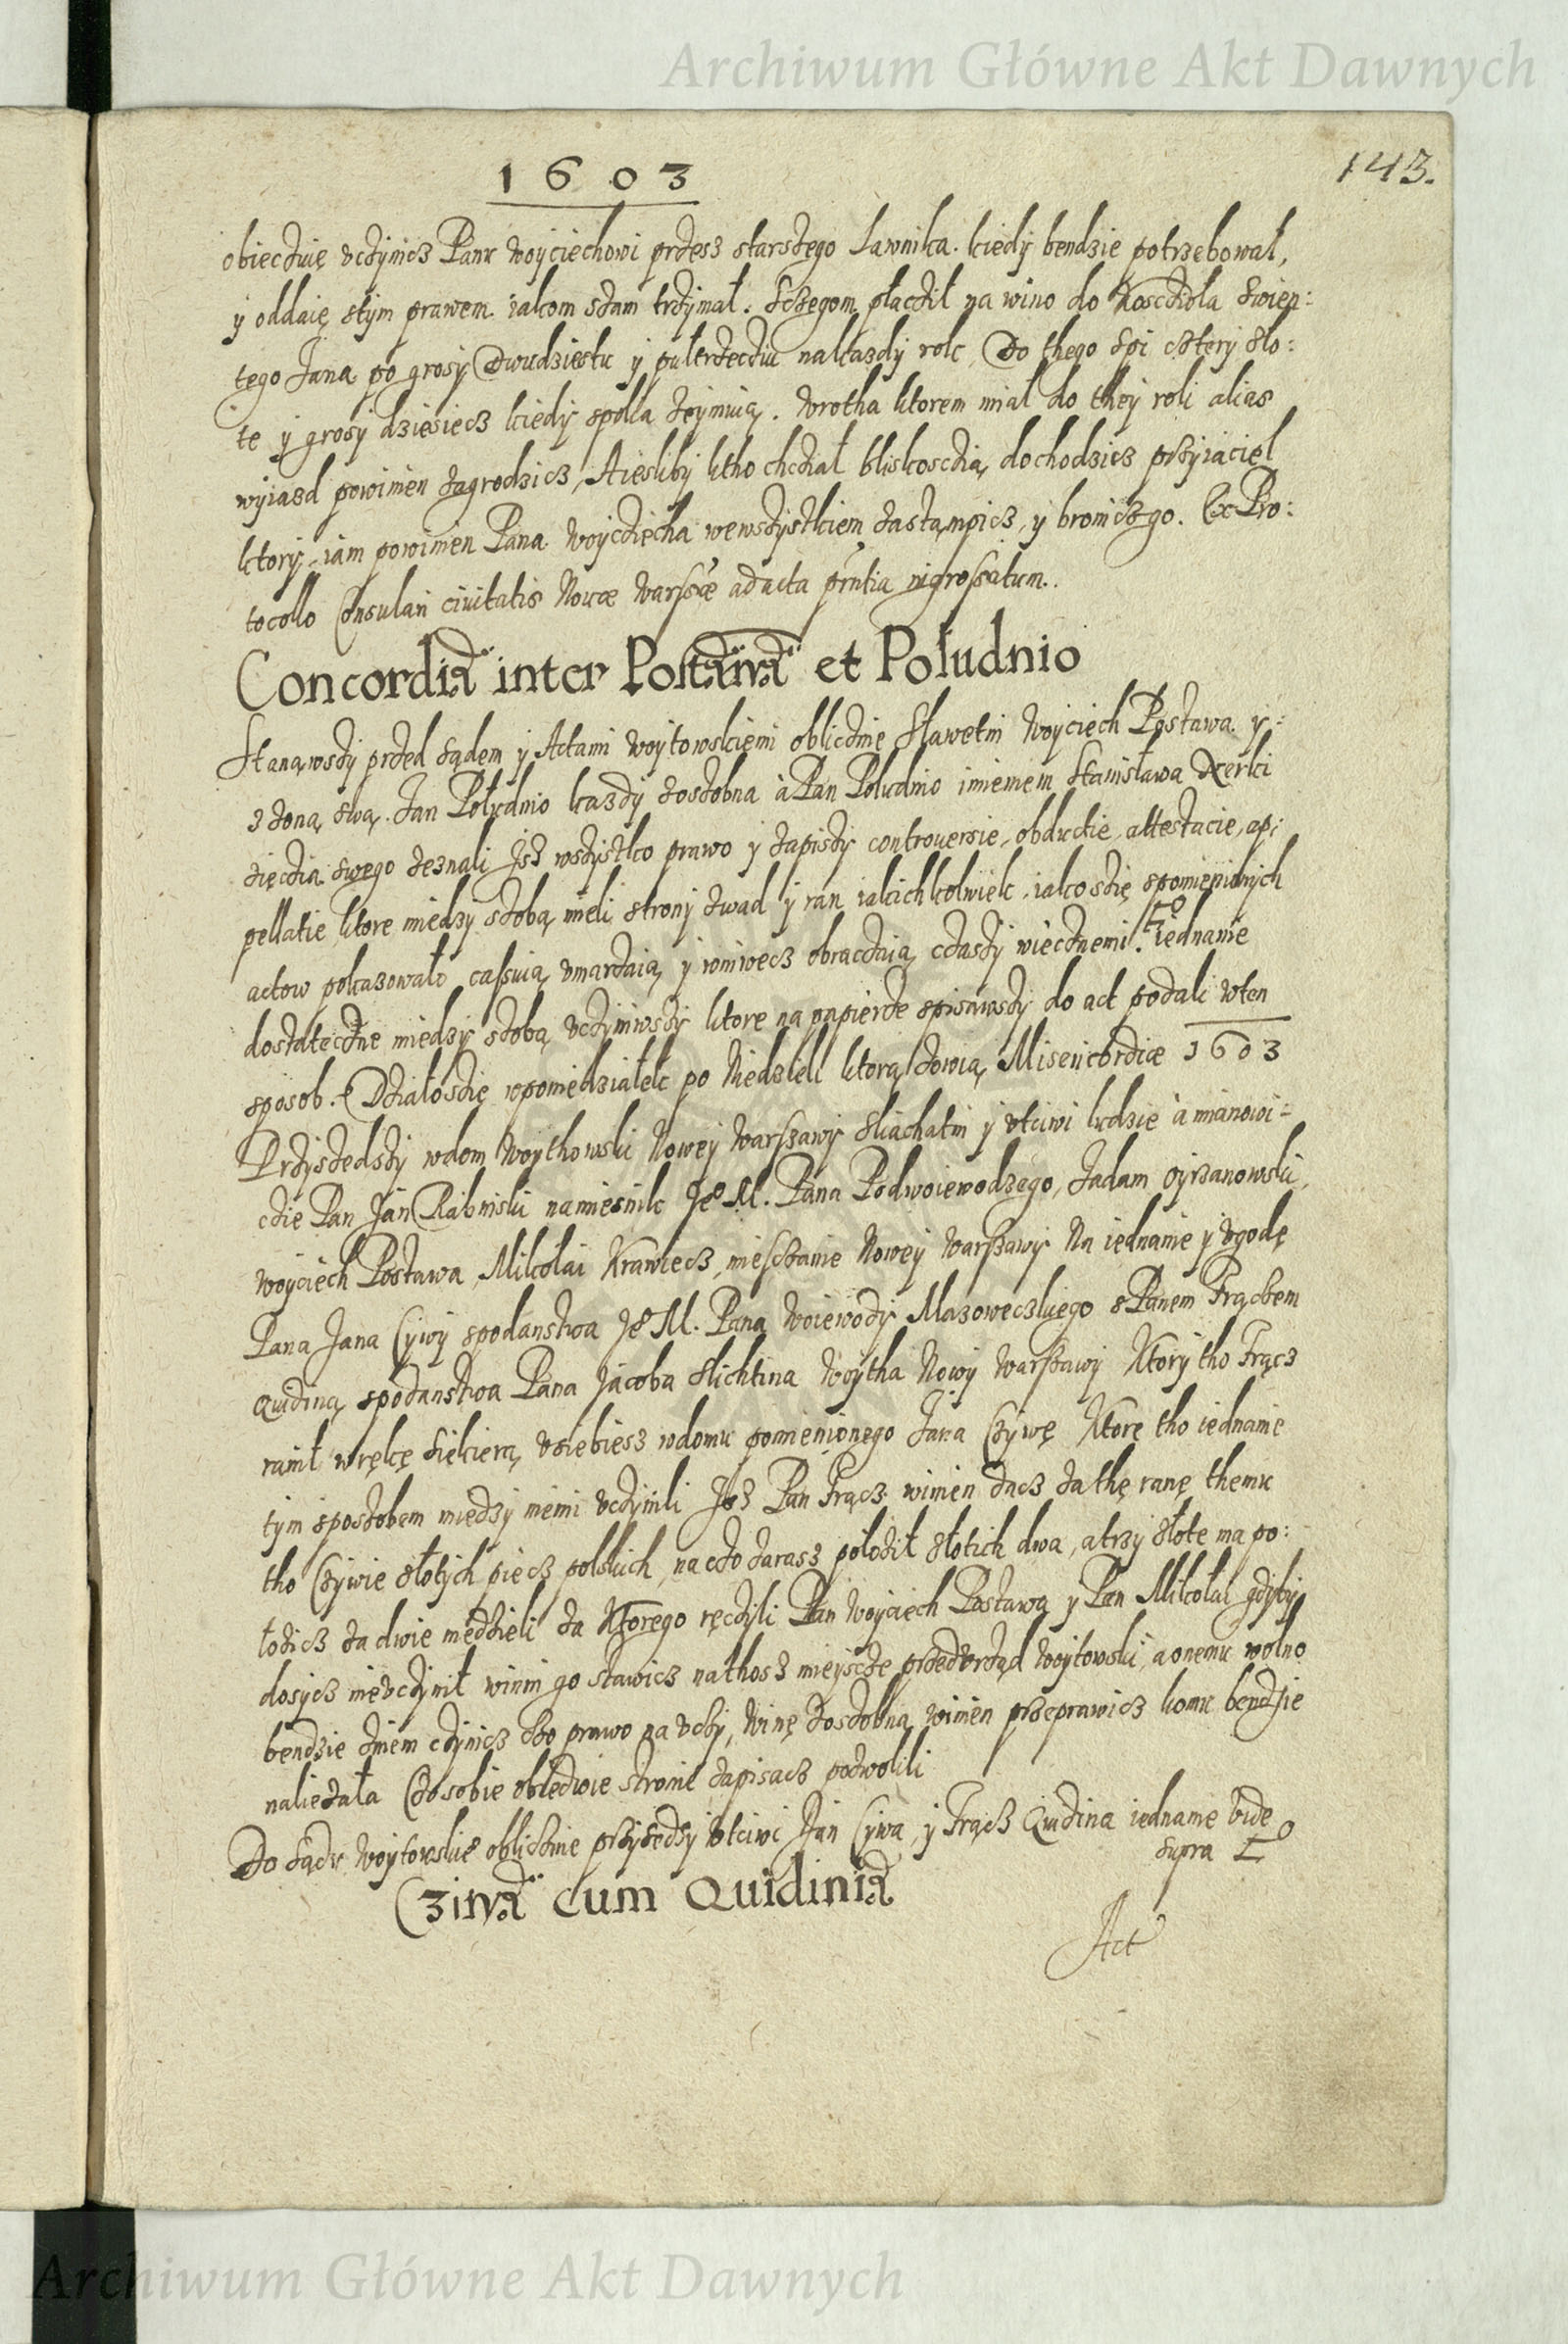 Archiwum Główne Akt Dawnych
1603
143.
obiecziuię vczynicz Panu Woyciechowi przesz starszego Lawnika. kiedy bendzie potrzebował,
y oddaię stym prawem iakom szam trzymał. Sczegom płacził na wino do Kosczioła Swięn:
tego Jana po grosy Dwudziestu y pułtrzecziu nakazdy rok, Do thego Spi cztery Sło:
te y grosy dziesiecz kiedy spolla zeymuią. Wrotha ktorem miał do they roli alias
wyiazd powinien zagrodzicz, Aiesliby ktho chcział bliskosczią dochodzicz przyiaciel
ktory, iam powinien Pana Woyciecha wewszystkiem zastąmpicz, y broniczgo. Ex Pro:
tocollo Consulari ciuitatis Nouæ Varsviæ ad acta prntia ingrossatum.
Concordia inter Postawa et Południo
Stanąwszy przed sądem y Actami woytowskiemi obliczinie Sławetni Woyciech Postawa y
z zoną swą. Jan Południo kazdy zoszobna à Pan Południo imieniem Stanisława Dzerki
zięczia swego zeznali Isz wszystko prawo y zapiszy controuersie, obductie, attestacie, ap:
pellatie ktore miedzy szobą mieli strony zwad y ran iakichkolwiek, iako szię spomienionych
actow pokazowało cassuią vmarzaią y wniwecz obracziaią czaszy wiecznemi. iednanie
dostateczne miedzy szobą vczyniwszy ktore na papierze spisawszy do act podali wten
sposob. Działoszię wponiedziałek po Niedzieli ktorą zowią Misericordiæ 1603
Przyszedszy wdom Woythowski Nowey Warszawy Sliachatni y vtciwi ludzie à mianowi=
czie Pan Jan Rabinski namiesnik Jego M. Pana Podwoiewodzego, Jadam Oyrzanowski,
Woyciech Postawa, Mikołai Krawiecz, miesczanie Nowey Warszawy Na iednanie y vgodę
Pana Jana Cywy spodanstwa Jego M. Pana Woiewody Mazowieczkiego s Panem Frączem
Quidiną spodanstwa Pana Jacoba Slichtina Woytha Nowy Warszawy Ktory tho Frącz
ranił wrękę siekierą vsiebiesz wdomu pomienionego Jana Czywę Ktore tho iednanie
tym sposzobem miedzy niemi vczynili Isz Pan Frącz winien dacz za thę ranę themu
tho Czywie słotych piecz polskich, na czo zarasz położił słotich dwa, a trzy słote ma po:
łozicz za dwie niedzieli za Ktorego ręczyli Pan Woyciech Postawa y Pan Mikołai gdyby
dosycz nievczynił winni go stawicz nathosz mieyscze przedvrząd Woytowski, a onemu wolno
bendzie zniem czynicz czo prawo na vczy, Winę zoszobna winien przeprawicz komu bendzie
nalieżała Czo sobie obiedwie stronie zapisacz pozwolili
Do sądu Woytowskiego obliczinie przyszedszy vtciwi Jan Cywa, y Frącz Quidina iednanie vide
supra
Cziwa cum Quidinia
Act
Archiwum Główne Akt Dawnych